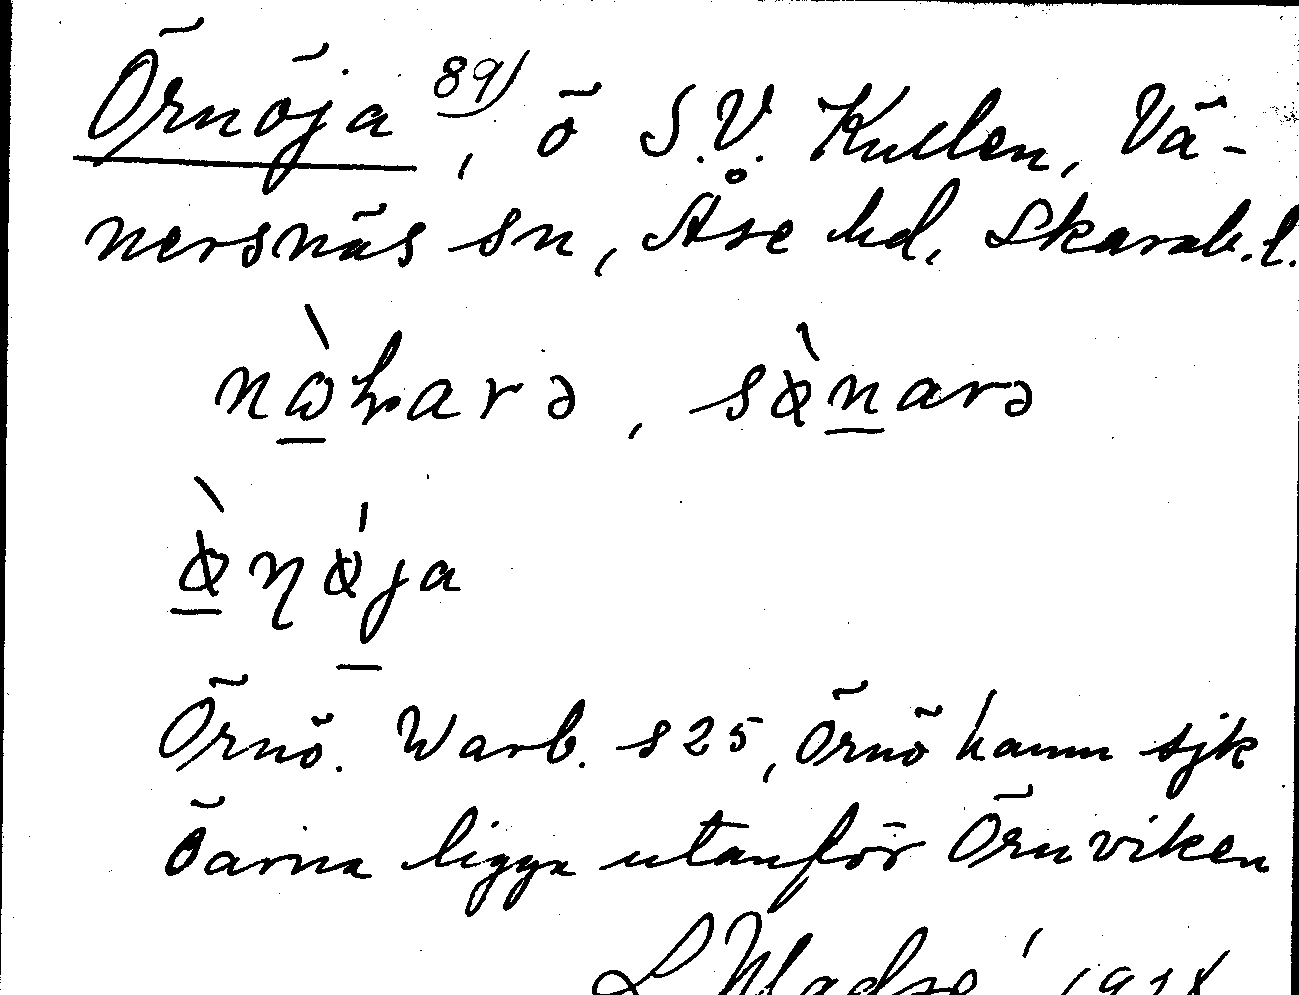 Örnöja 89), ö S.V. Kullen, Vä-
nersnäs sn, Åse hd, Skarab.l.
nə̀harə, sø̀narə
ø̀ηǿja
Örnö. Warb. s 25, Örnö hamn sjk
Öarna ligga utanför Örnviken